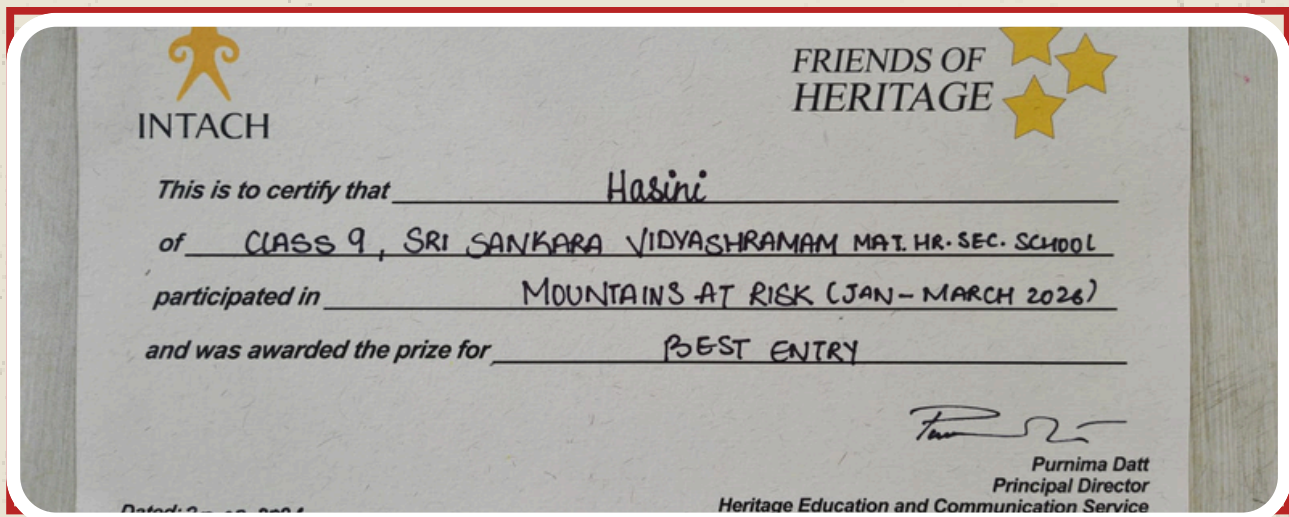 INTACH
FRIENDS OF
HERITAGE
This is to certify that Hasini
of CLASS 9, SRI SANKARA VIDYASHRAMAM MAT. HR. SEC. SCHOOL
participated in MOUNTAINS AT RISK (JAN - MARCH 2026)
and was awarded the prize for BEST ENTRY
Purnima Datt
Principal Director
Heritage Education and Communication Service
Dated: